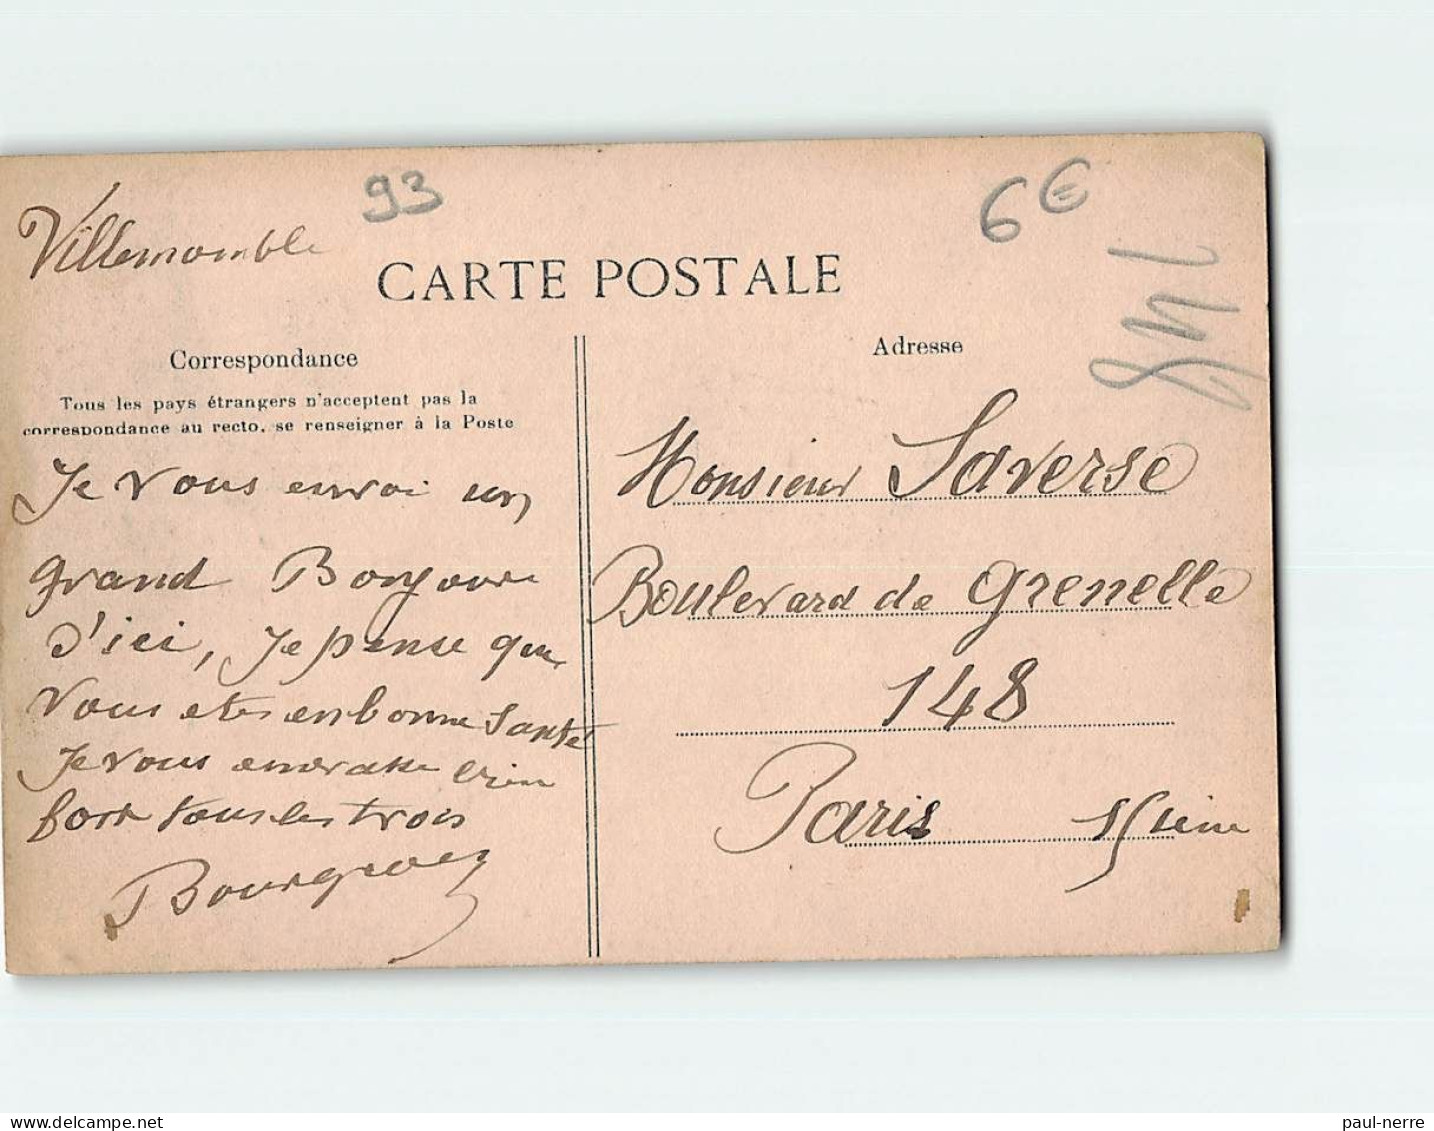 Villemomble
93
6€
CARTE POSTALE
Correspondance
Tous les pays étrangers n'acceptent pas la
correspondance au recto, se renseigner à la Poste
Je vous envoi un
grand Bonjour
d'ici, Je pense que
vous etes en bonne Santé
Je vous embrasse bien
fort tous les trois
Adresse
148
Monsieur Saverse
Boulevard de Grenelle
148
Paris
delcampe.net
paul-nerre